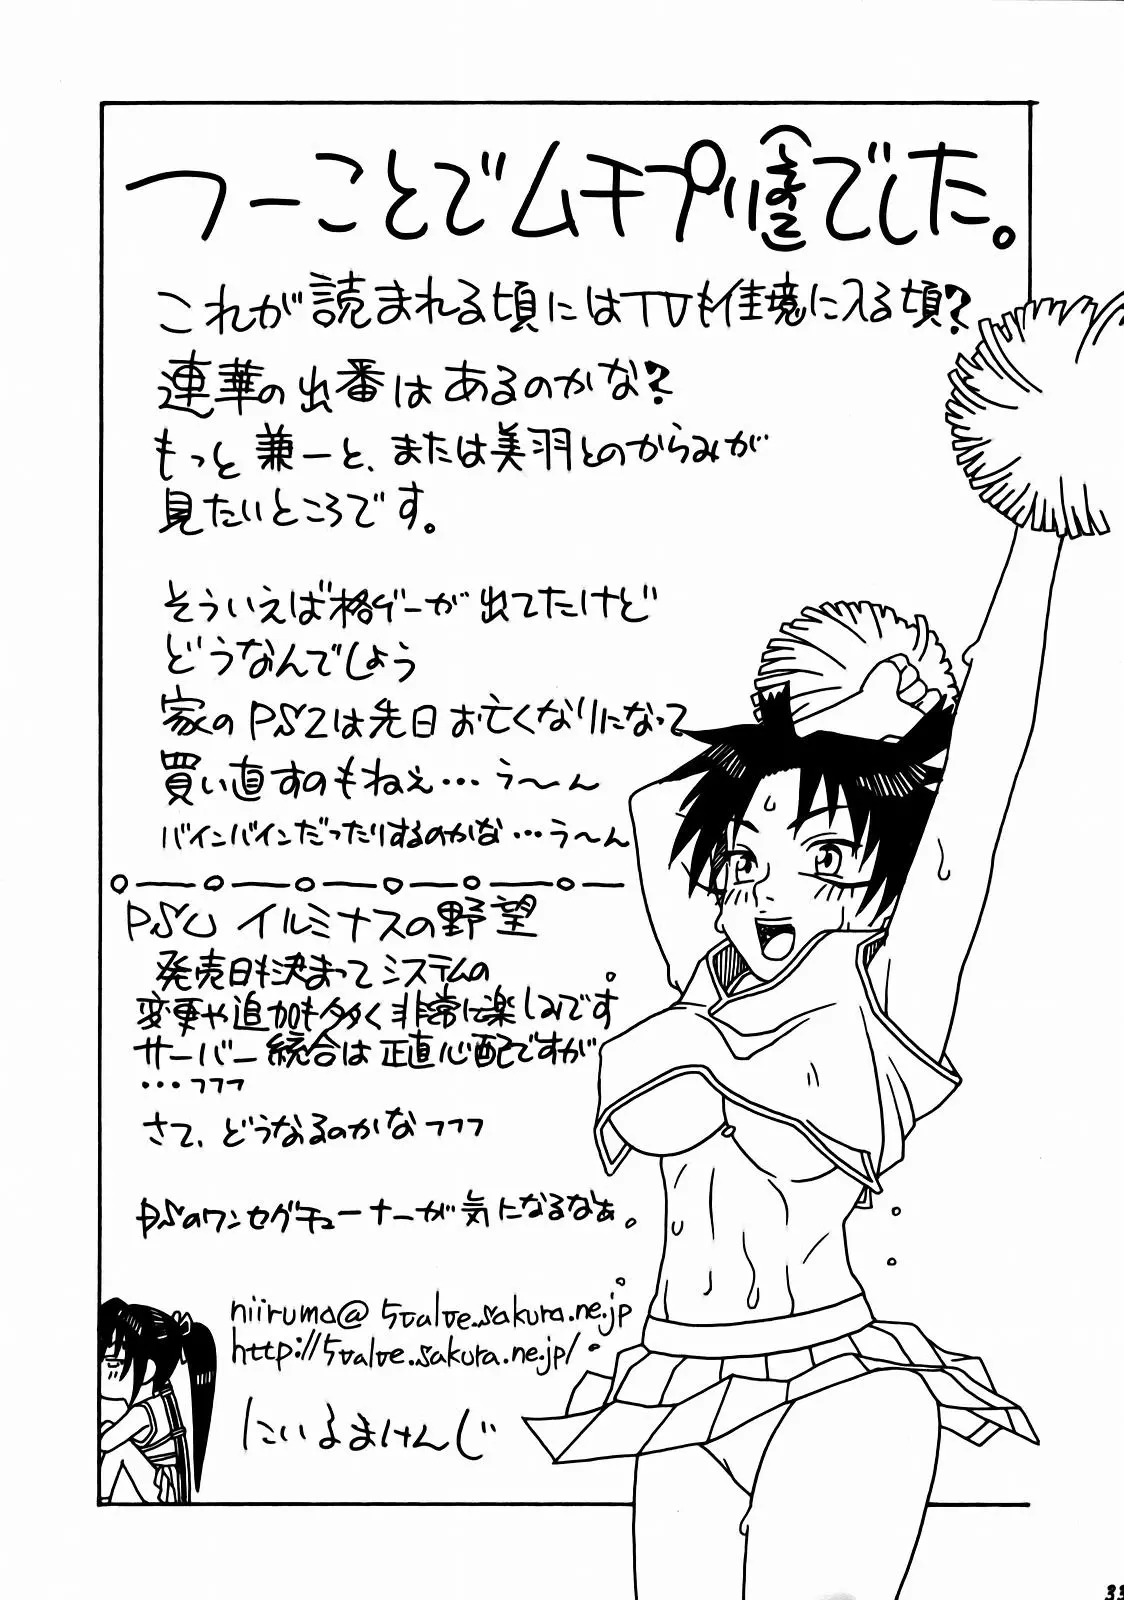 つーことでムチプリ(その壱)でした。
これが読まれる頃にはTVも佳境に入る頃?
連華の出番はあるのかな?
もっと兼一と、または美羽とのからみが
見たいところです。
そういえば格ゲーが出てたけど
どうなんでしょう
家のPS2は先日お亡くなりになって
買い直すのもねぇ…う〜ん
バインバインだったりするのかな…う〜ん
PSU イルミナスの野望
発売日も決まってシステムの
変更や追加も多く非常に楽しみです
サーバー統合は正直心配ですが
…フフフ
さて、どうなるのかなフフフ
PSのワンセグチューナーが気になるなぁ。
niiruma@5valve.sakura.ne.jp
http://5valve.sakura.ne.jp/
にいるまけんじ
33